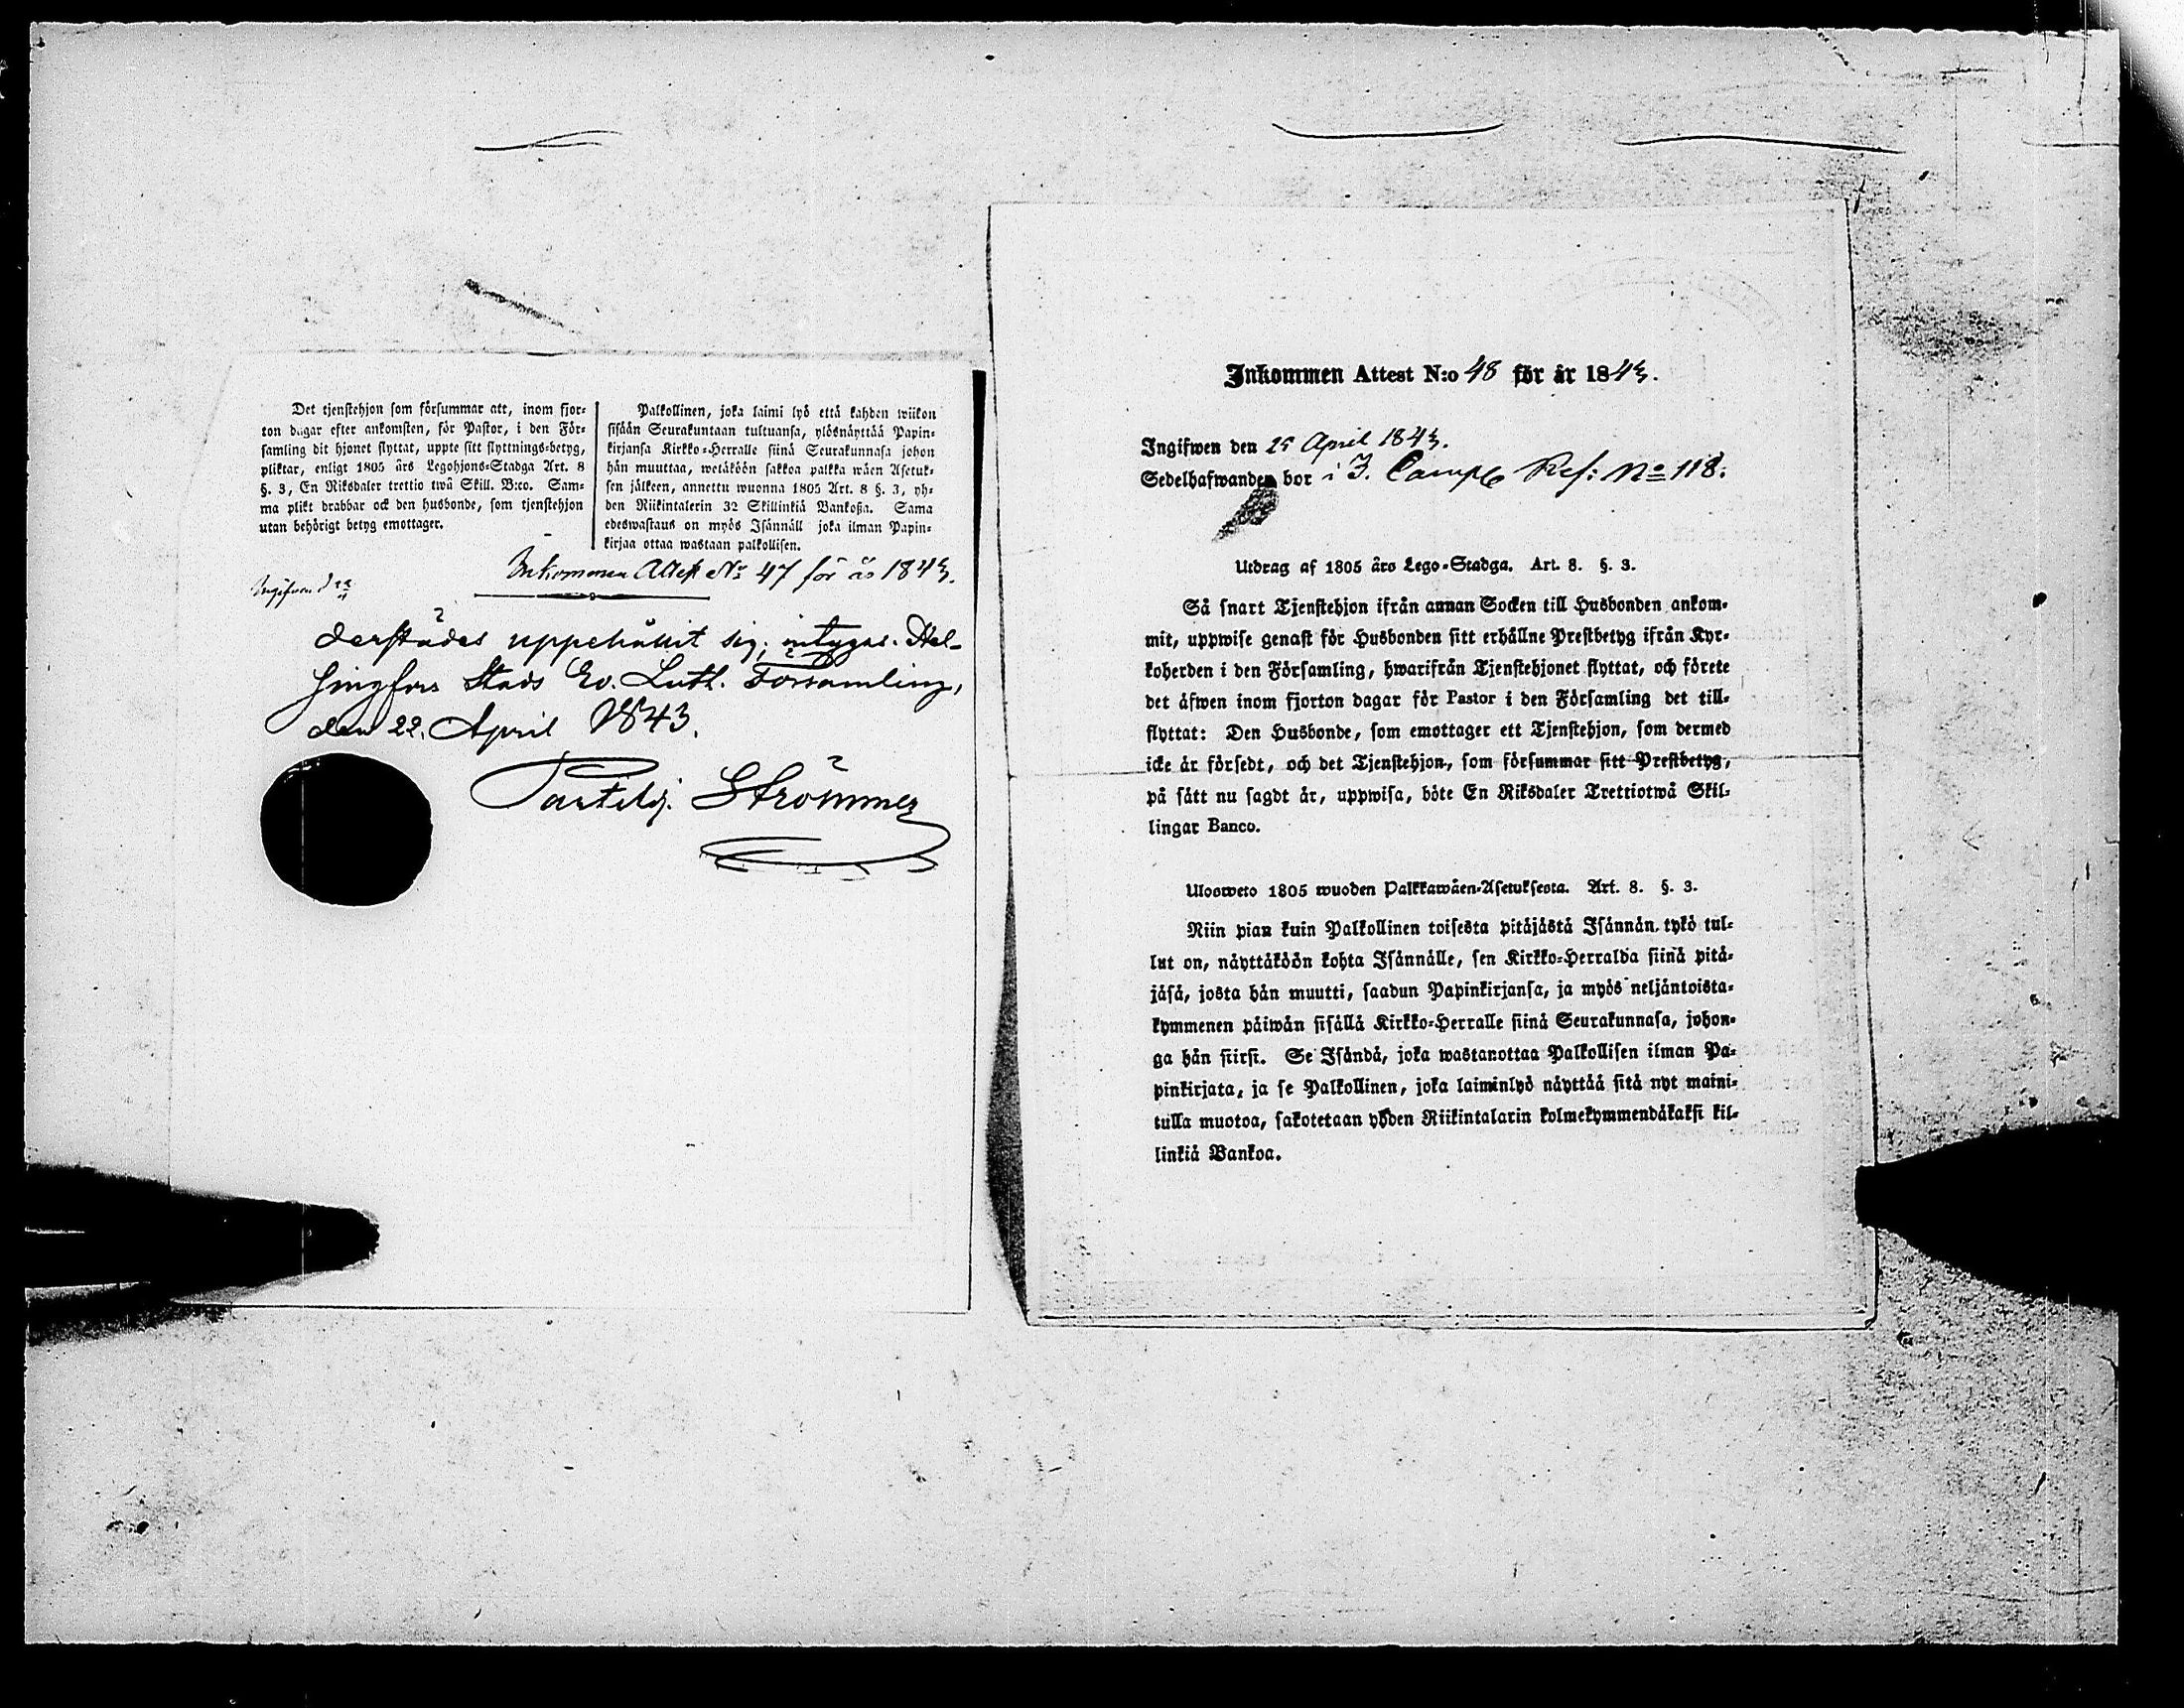 Det tjenstehjon som försummar att, inom fjor-
ton dagar efter ankomsten, för Pastor, i den För-
samling dit hjonet flyttat, uppte sitt flyttnings-betyg,
pliktar, enligt 1805 års Legohjons-Stadga Art. 8
§. 3, En Riksdaler trettio twå Skill. B:co. Sam-
ma plikt drabbar ock den husbonde, som tjenstehjon
utan behörigt betyg emottager.
Palkollinen, joka laimi lyö että kahden wiikon
sisään Seurakuntaan tultuansa, ylösnäyttää Papin-
kirjansa Kirkko-Herralle siinä Seurakunnasa johon
hän muuttaa, wetäköön sakkoa palkka wäen Asetuk-
sen jälkeen, annettu wuonna 1805 Art. 8 §. 3, yh-
den Riikintalerin 32 Skillinkiä Bankoßa. Sama
edeswastaus on myös Isännäll joka ilman Papin-
kirjaa ottaa wastaan palkollisen.
Inkommen Attest No 47 för år 1843.
derstädes uppehållit sig; intygas. Hel-
singfors Stads Ev. Luth. Församling,
den 22. April 1843.
Strömmer
Inkommen Attest N:o 48 för år 1843.
Ingifwen den 25 April 1843.
Sedelhafwanden bor i 3. Camp Ref: No 118.
Utdrag af 1805 års Lego-Stadga. Art. 8. §. 3.
Så snart Tjenstehjon ifrån annan Socken till Husbonden ankom-
mit, uppwise genast för Husbonden sitt erhållne Prestbetyg ifrån Kyr-
koherden i den Församling, hwarifrån Tjenstehjonet flyttat, och förete
det äfwen inom fjorton dagar för Pastor i den Församling det till-
flyttat: Den Husbonde, som emottager ett Tjenstehjon, som dermed
icke är försedt, och det Tjenstehjon, som försummar sitt Prestbetyg,
på sätt nu sagdt är, uppwisa, böte En Riksdaler Trettiotwå Skil-
lingar Banco.
Ulosweto 1805 wuoden Palkkawäen-Asetuksesta. Art. 8. §. 3.
Niin pian kuin Palkollinen toisesta pitäjästä Isännän tykö tul-
lut on, näyttäköön kohta Isännälle, sen Kirkko-Herralda siinä pitä-
jäsä, josta hän muutti, saadun Papinkirjansa, ja myös neljäntoista-
kymmenen päiwän sisällä Kirkko-Herralle siinä Seurakunnasa, johon-
ga hän siirsi. Se Isändä, joka wastanottaa Palkollisen ilman Pa-
pinkirjata, ja se Palkollinen, joka laiminlyö näyttää sitä nyt maini-
tulla muotoa, sakotetaan yhden Riikintalarin kolmekymmendäkaksi kil-
linkiä Bankoa.